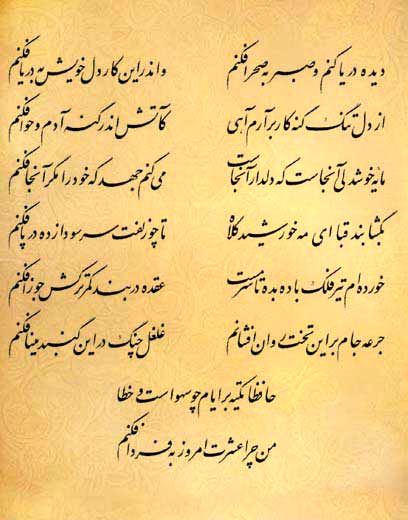 دیده دریا کنم و صبر به صحرا فکنم و اندر این کار دل خویش به دریا فکنم
از دل تنگ گنه کار برآرم آهی کآتش اندر گنه آدم و حوا فکنم
مایه خوشدلی آنجاست که دلدار آنجاست می کنم جهد که خود را مگر آنجا فکنم
بگشا بند قبا ای مه خورشید کلاه تا چو زلفت سر سودا زده در پا فکنم
خورده ام تیر فلک باده بده تا سرمست عقده در بند کمر ترکش جوزا فکنم
جرعه جام بر این تخت روان افشانم غلغل چنگ در این گنبد مینا فکنم
حافظا تکیه بر ایام چو سهو است و خطا
من چرا عشرت امروز به فردا فکنم